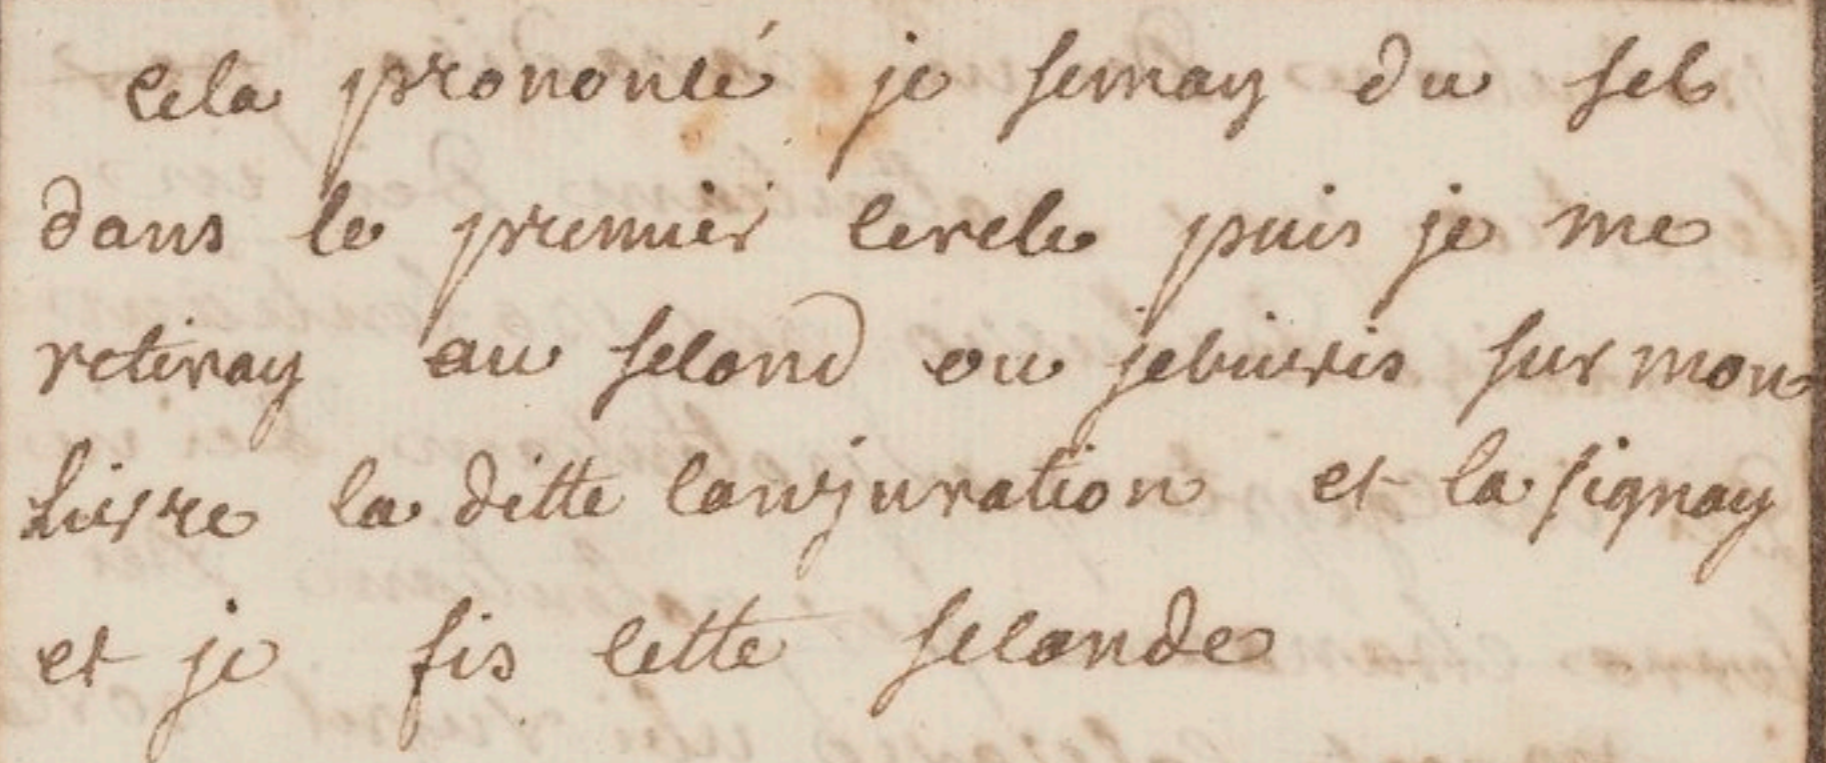 cela prononcé je semay du sel
dans le premier cercle puis je me
retiray au second ou jebuivris sur mon
Livre la ditte conjuration et la signay
et je fis cette seconde